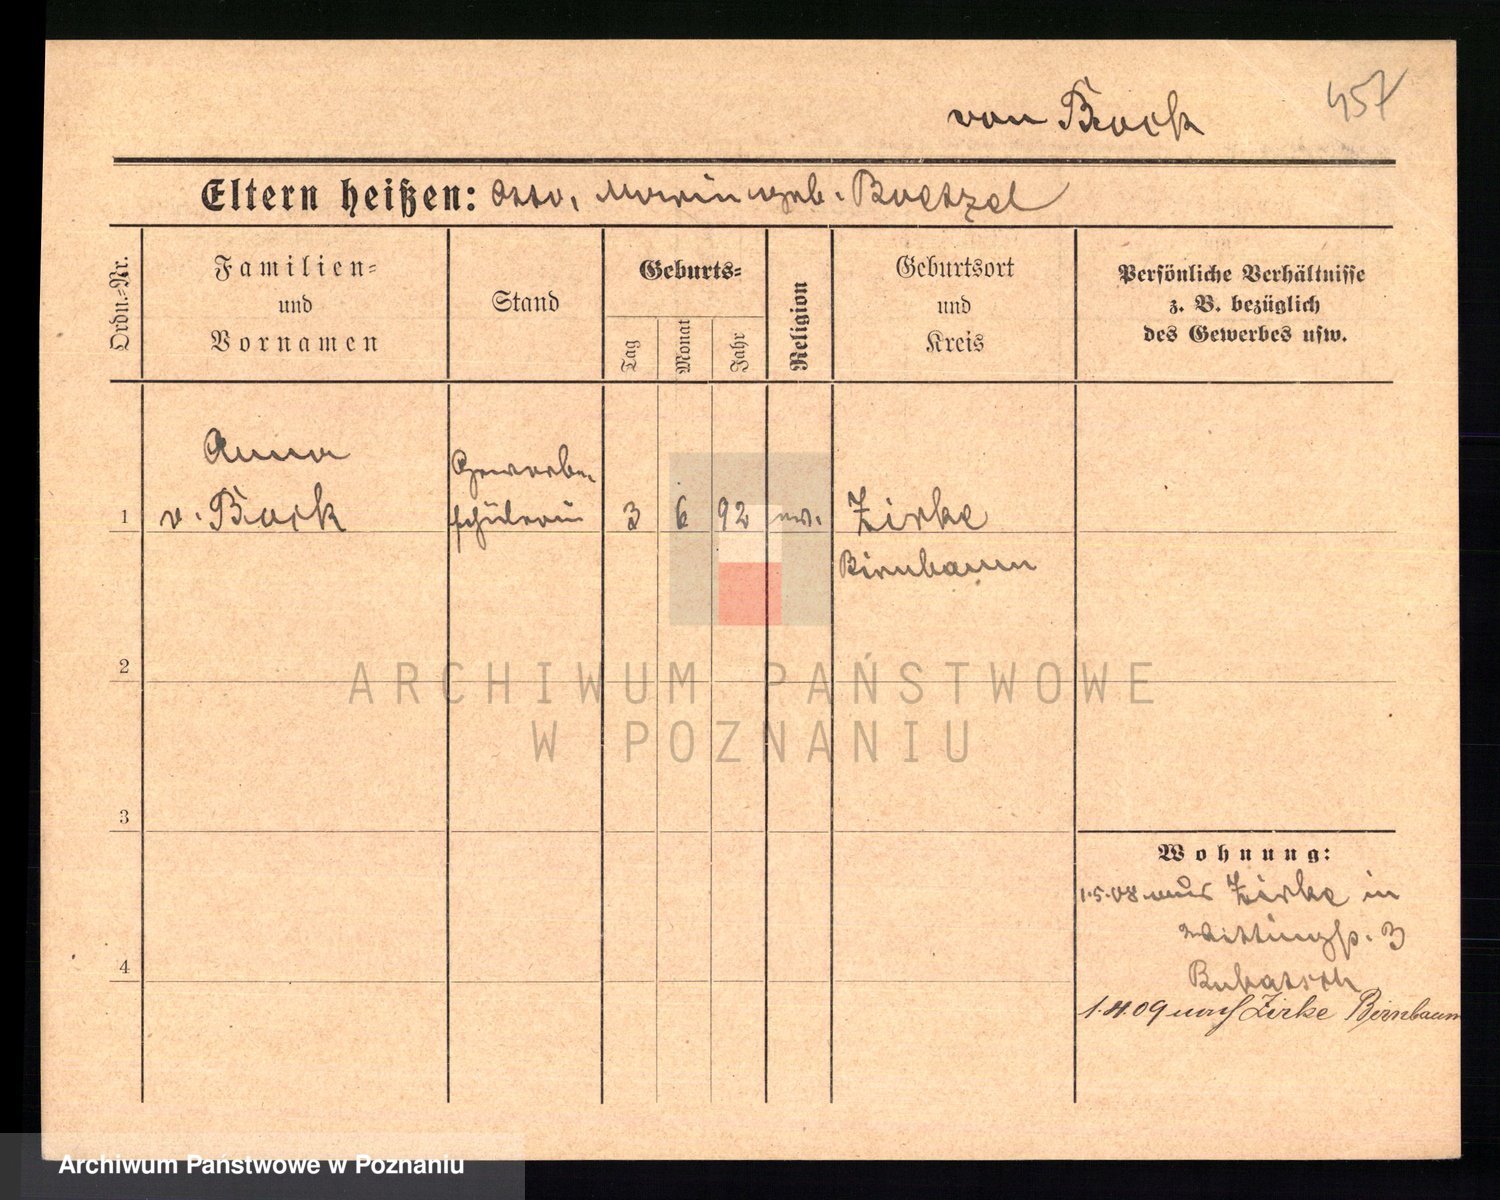 von Bock 457
Eltern heißen: Otto, Maria geb. Boetzel
Ordn.-Nr.
Familien-
und
Vornamen
Stand
Geburts-
Tag
Monat
Jahr
Religion
Geburtsort
und
Kreis
Persönliche Verhältnisse
z. B. bezüglich
des Gewerbes usw.
1
Anna
v. Bock
Gewerbe-
schülerin
3 6 92 ev.
Zirke
Birnbaum
2
3
4
Wohnung:
1.5.08 aus Zirke in
3
1.4.09 nach Zirke Birnbaum
ARCHIWUM PAŃSTWOWE
W POZNANIU
Archiwum Państwowe w Poznaniu